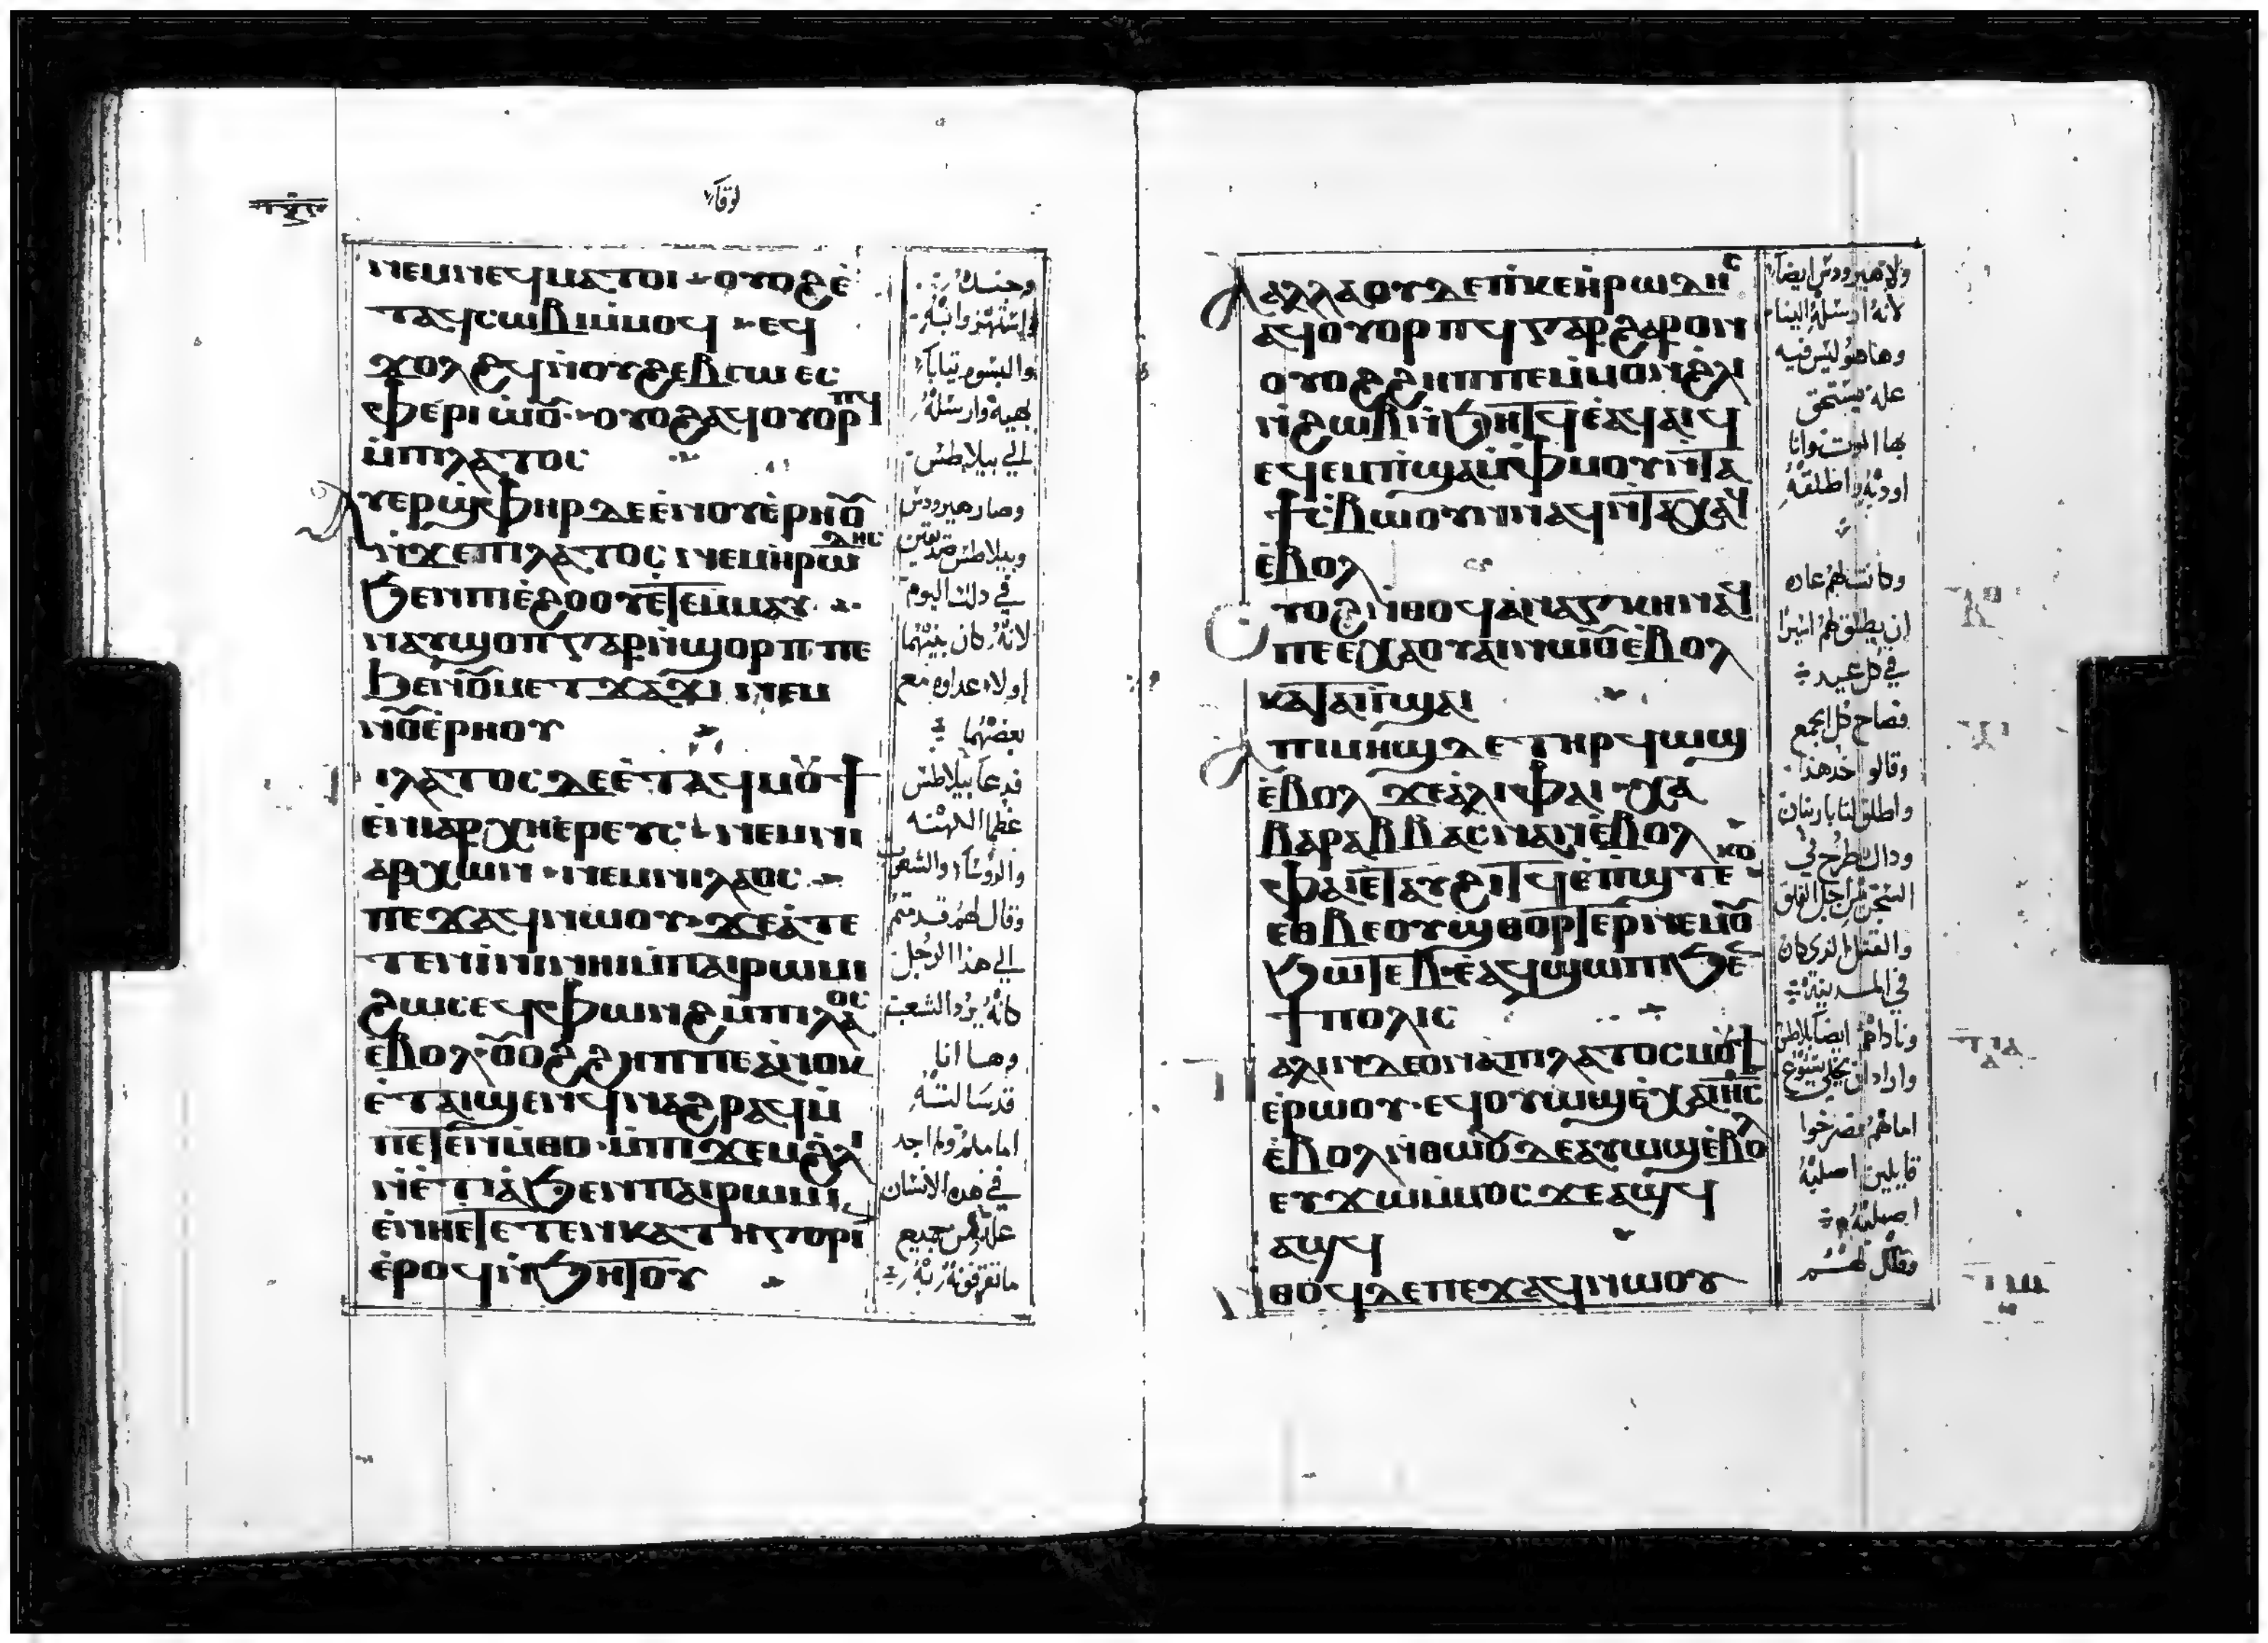 لوقا
ⲛⲉⲙⲛⲉϥⲙⲁⲧⲟⲓ ⲟⲩⲟϩⲉ̀
ⲧⲁϥⲥⲱⲃⲓⲙ̀ⲙⲟϥ ⲉϥ
ϫⲟⲗϩϥⲛ̀ⲟⲩϩⲉⲃⲥⲱ ⲉϥ
ⲫⲉⲣⲓⲱⲟ̅ ⲟⲩⲟϩⲁϥⲟⲩⲟⲣⲡϥ
ⲙ̀ⲡⲓⲗⲁⲧⲟⲥ
ⲁⲩⲉⲣϣ̀ⲫⲏⲣ ⲇⲉⲉ̀ⲛⲟⲩⲉ̀ⲣⲏⲟ̅
ⲛ̀ϫⲉⲡⲓⲗⲁⲧⲟⲥ ⲛⲉⲙⲏⲣⲱⲇⲏⲥ
ϧⲉⲛⲡⲓⲉ̀ϩⲟⲟⲩⲉⲧⲉⲙⲙⲁⲩ
ⲛⲁⲩϣⲟⲡ ⲅⲁⲣⲛ̀ϣⲟⲣⲡ ⲡⲉ
ϧⲉⲛⲟ̅ⲙⲉⲧϫⲁϫⲓ ⲛⲉⲙ
ⲛⲟ̅ⲉ̀ⲣⲏⲟⲩ
ⲓⲗⲁⲧⲟⲥ ⲇⲉⲉ̀ⲧⲁϥⲙⲟ̅ϯ
ⲉ̀ⲛⲓⲁⲣⲭⲏⲉ̀ⲣⲉⲩⲥ ⲛⲉⲙⲛⲓ
ⲁⲣⲭⲱⲛ ⲛⲉⲙⲡⲓⲗⲁⲟⲥ
ⲡⲉϫⲁϥⲛⲱⲟⲩ ϫⲉⲁ̀ⲧⲉ
ⲧⲉⲛⲓ̀ⲛⲓⲛⲏⲓⲙ̀ⲡⲁⲓⲣⲱⲙⲓ
ϩⲱⲥⲉϥⲫⲱⲛϩⲙ̀ⲡⲓⲗⲁⲟⲥ
ⲉ̀ⲃⲟⲗ ⲟ̅ⲟϩϩⲏⲡⲡⲉⲁ̀ⲛⲟⲕ
ⲉ̀ⲧⲁⲓϣⲉⲛϥⲛⲁϩⲣⲁϥⲙ̀
ⲡⲉⲧⲉⲛⲙ̀ⲑⲟ ⲙ̀ⲡⲓϫⲉⲙϩ̀ⲗⲓ
ⲛ̀ⲉⲧⲓⲁ̀ϧⲉⲛⲡⲁⲓⲣⲱⲙⲓ
ⲉ̀ⲛⲏⲉⲧⲉⲧⲉⲛⲕⲁⲧⲏⲅⲟⲣⲓ
ⲉ̀ⲣⲟϥⲛ̀ϧⲏⲧⲟⲩ
وجنسده
استهزوا به
والبسوه تيابا
بهيه وارسله
الي بيلاطس
وصار هيرودس
وبيلاطس صديقين
في دلك اليوم
لانه كان بينهما
اولا عداوه مع
بعضهما
فدعا بيلاطس
عظما الكهنه
والروسا والشعب
وقال لهم قدمتم
الي هذا الرجل
كانه يرد الشعب
وها انا
قد سالته
امامكم ولم اجد
في هدا الانسان
عله من جميع
ما تقرفونه به
ⲁⲗⲗⲁⲟⲩⲇⲉⲡ̀ⲕⲉⲏ̀ⲣⲱⲇⲏⲥ
ⲁϥⲟⲩⲟⲣⲡϥ ⲅⲁⲣϩⲁⲣⲟⲛ
ⲟⲩⲟϩϩⲏⲡⲡⲉⲙ̀ⲙⲟⲛϩ̀ⲗⲓ
ⲛ̀ϩⲱⲃⲛ̀ϧⲏⲧϥⲉ̀ⲁϥⲁⲓϥ
ⲉϥⲉⲙⲡ̀ϣⲁⲙ̀ⲫⲙⲟⲩⲛ̀ⲧⲁ
ϯⲥ̀ⲃⲱⲟⲩⲛⲛⲁϥⲛ̀ⲧⲁⲭⲁϥ
ⲉ̀ⲃⲟⲗ
ⲟⲩⲟϩⲛ̀ⲑⲟϥⲁⲛⲁⲅⲕⲏⲛⲁϥ
ⲡⲉⲉ̀ⲭⲁⲟⲩⲁⲓⲛⲱⲟ̅ⲉ̀ⲃⲟⲗ
ⲕⲁⲧⲁⲡ̀ϣⲁⲓ
ⲁⲡⲓⲙⲏϣ ⲇⲉ ⲧⲏⲣϥⲱϣ
ⲉ̀ⲃⲟⲗ ϫⲉⲁ̀ⲗⲓⲫⲁⲓ ⲭⲁ
ⲃⲁⲣⲁⲃⲃⲁⲥⲛⲁⲛⲉ̀ⲃⲟⲗ
ⲫⲁⲓⲉⲧⲁⲩϩⲓⲧϥⲉ̀ⲡ̀ϣⲧⲉⲕⲟ̅
ⲉⲑⲃⲉⲟⲩϣ̀ⲑⲟⲣⲧⲉⲣⲛⲉⲙⲟ̅
ϧⲱⲧⲉⲃ ⲉ̀ⲁϥϣⲱⲡⲓϧⲉ̅
ϯⲡⲟⲗⲓⲥ
ⲡⲁⲗⲓⲛⲇⲉⲟⲛⲁⲡⲓⲗⲁⲧⲟⲥⲙⲟ̅ϯ
ⲉ̀ⲣⲱⲟⲩ ⲉϥⲟⲩⲱϣⲉ̀ⲭⲁⲓⲏⲥ
ⲉ̀ⲃⲟⲗ ⲛ̀ⲑⲱⲟⲩⲇⲉⲁⲩⲱϣⲉ̀ⲃⲟⲗ
ⲉⲩϫⲱⲙ̀ⲙⲟⲥ ϫⲉⲁϣϥ
ⲁϣϥ
ⲛⲑⲟϥⲇⲉⲡⲉϫⲁϥⲛⲱⲟⲩ
ولا هيرودس ايضا
لانه ارسله الينا
وها هو ليس فيه
عله يستحق
بها الموت وانا
اودبه واطلقه
وكانت لهم عاده
ان يطلق لهم اسيرا
في كل عيد
فصاح كل الجمع
وقالوا خد هذا
واطلق لنا باربنان
وداك طرح في
السجن من اجل القلق
والقتل الذي كان
في المدينه
وناداهم ايضا بلاطس
واراد ان يخلي يسوع
اما هم فصرخوا
قايلين اصلبه
اصلبه
وقال لهم